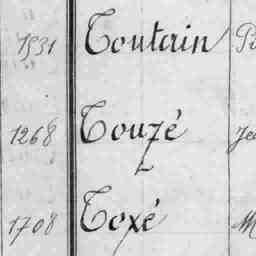 1531 Toutain
1268 Touzé
1708 Toxé